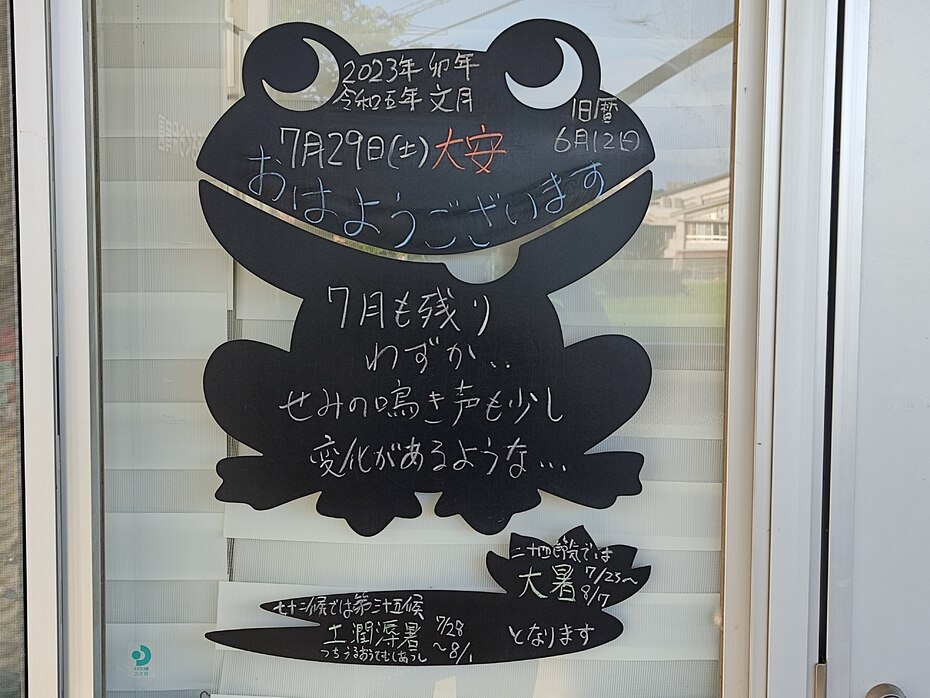 2023年 卯年
令和五年 文月
旧暦
6月12日
7月29日(土)大安
おはようございます
7月も残り
わずか..
せみの鳴き声も少し
変化があるような...
二十四節気では
大暑 7/23~
8/7
七十二候では第三十五候
土潤溽暑 7/28
~8/1
つちうるおうてむしあつし
となります